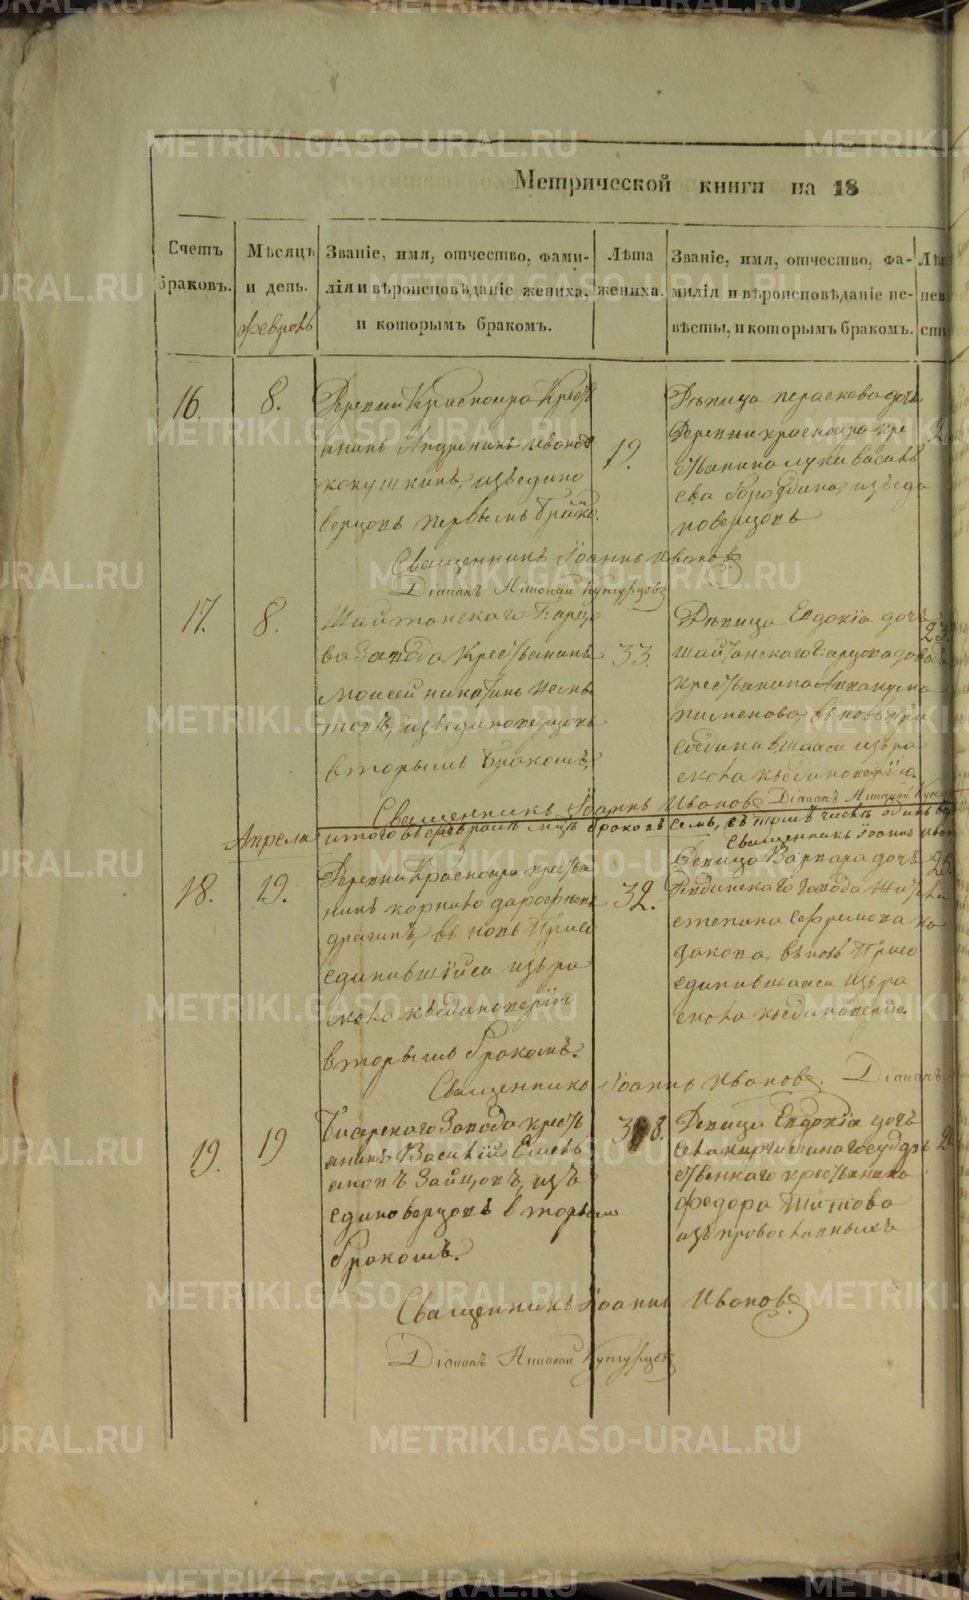 Метрической книги на 18
Счетъ браковъ.
Мѣсяцъ и день.
Февраль
Званіе, имя, отчество, фами-
лія и вѣроисповѣданіе жениха,
и которымъ бракомъ.
Лѣта
жениха.
Званіе, имя, отчество, фа-
милія и вѣроисповѣданіе не-
вѣсты, и которымъ бракомъ.
16.
8.
Деревни Краснояра Крестъ
янинъ Иванов
кокушкинъ, изъ едино
верцовъ первымъ брако.
19.
Девица параскева дочь
Деревни краснояра кре
стьянина луки василь
ева Бороздина, изъ еди
новерцовъ
Священникъ Іоаннъ Ивановъ
Діаконъ Николай Кунгурцовъ
17.
8.
Шайтанского
Завода Крестьянинъ
моисей никитинъ
изъ единоверцовъ
вторымъ бракомъ,
33.
Девица Евдокія дочь
шайтанскаго завода
крестьянина
пименова, вновь при
соединившаяся изъ ра
скола къ единоверію.
23.
Священникъ Іоаннъ Ивановъ Діаконъ Николай
итого въ феврале м-це браковъ семь, въ томъ числе один
Священникъ Іоаннъ
Апрель
18.
19.
Деревни Краснояра крестья
нинъ корнило дорофеевъ
драгинъ, въ новь Присо
единившійся изъ ра
скола къ единоверію
вторымъ бракомъ.
32.
Девица Варвара дочь
завода
степана Ефремова ка
закова, въ новь Присо
единившаяся изъ ра
скола къ единоверію.
Священникъ Іоаннъ Ивановъ. Діаконъ
19.
19
Бисерскаго Завода кресть
янинъ Василій Емель
яновъ Зайцовъ, изъ
единоверцовъ вторымъ
бракомъ.
38.
Девица Евдокія дочь
села киргишина государ
ственнаго крестьянина
федора Титова
изъ православныхъ
Священникъ Іоаннъ Ивановъ
Діаконъ Николай Кунгурцовъ
METRIKI.GASO-URAL.RU